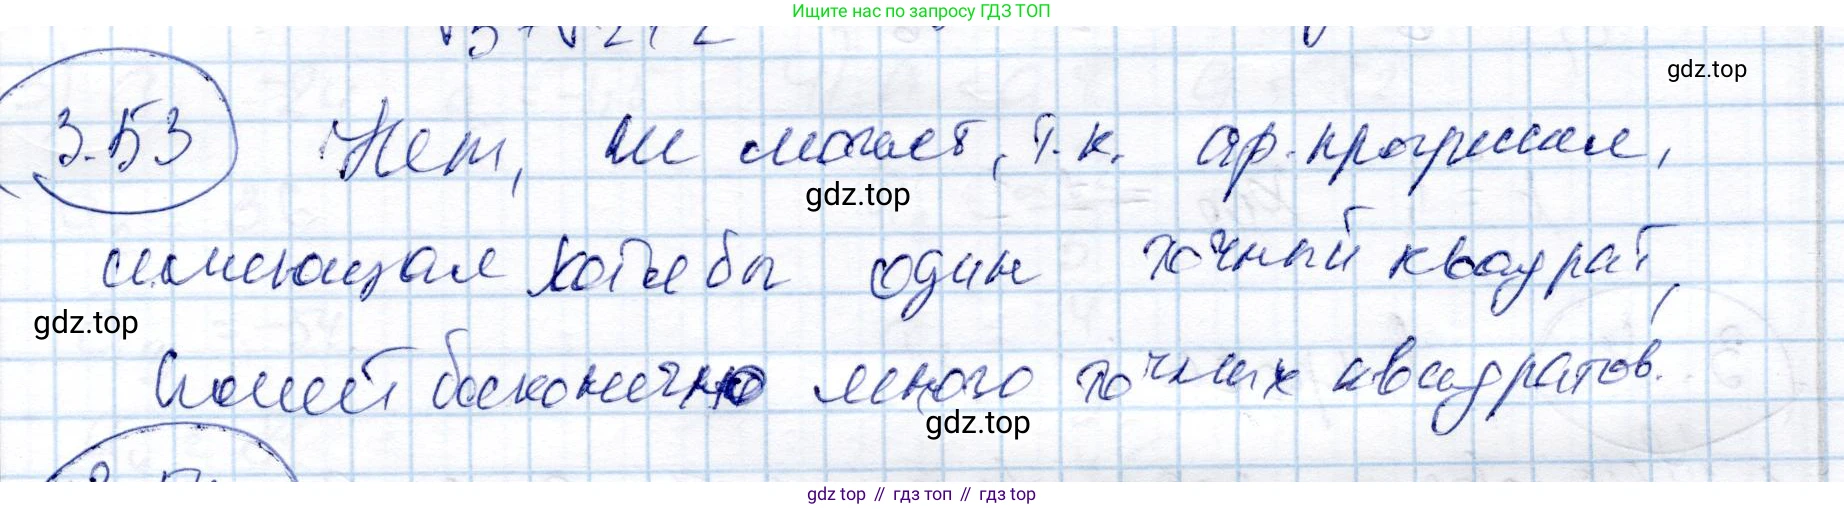 Ищите нас по запросу ГДЗ ТОП
gdz.top
3.53 Нет, не может, т.к. ар. прогрессия,
gdz.top
имеющая хотя бы один точный квадрат,
gdz.top
имеет бесконечно много точных квадратов.
gdz.top
gdz top // гдз топ // gdz top